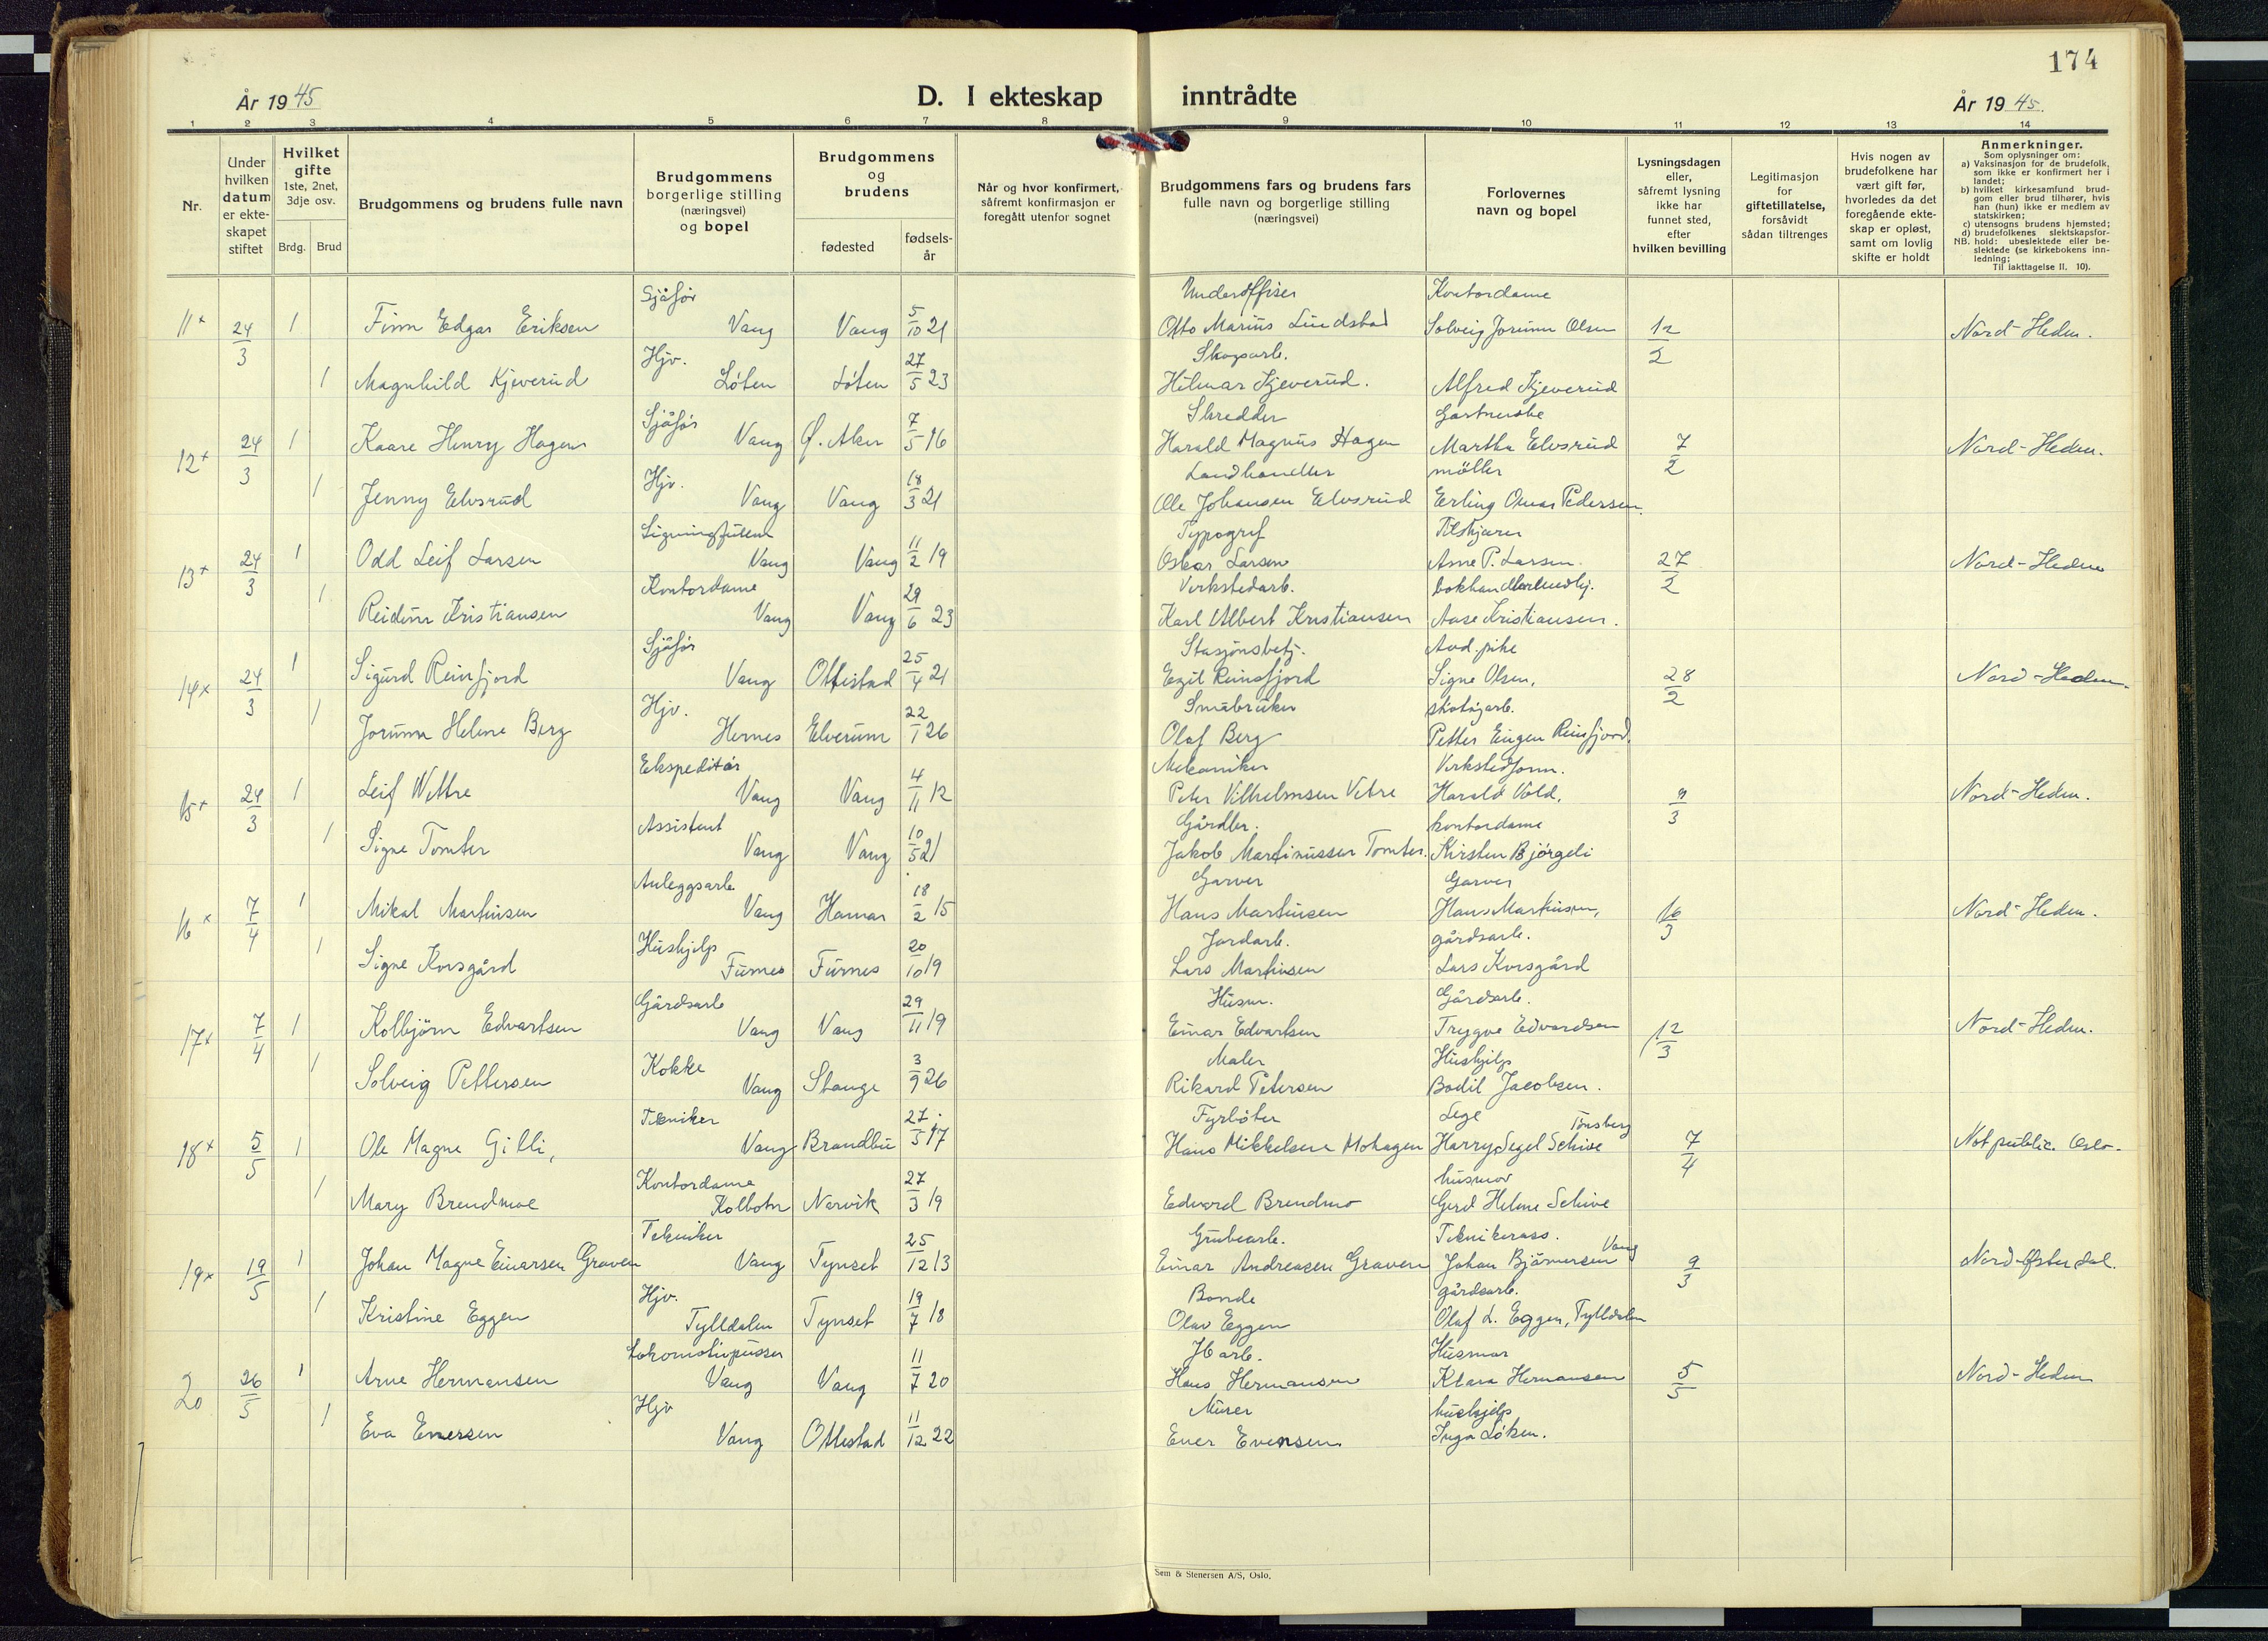 174
År 19 45
D. I ekteskap inntrådte
År 19 45.
1 2 3 4 5 6 7 8 9 10 11 12 13 14
Nr.
Under hvilken datum er ekteskapet stiftet
Hvilket gifte 1ste, 2net, 3dje osv.
Brdg. Brud
Brudgommens og brudens fulle navn
Brudgommens borgerlige stilling (næringsvei) og bopel
Brudgommens og brudens
fødested
fødsels-år
Når og hvor konfirmert, såfremt konfirmasjon er foregått utenfor sognet
Brudgommens fars og brudens fars fulle navn og borgerlige stilling (næringsvei)
Forlovernes navn og bopel
Lysningsdagen eller, såfremt lysning ikke har funnet sted, efter hvilken bevilling
Legitimasjon for giftetillatelse, forsåvidt sådan tiltrenges
Hvis nogen av brudefolkene har vært gift før, hvorledes da det foregående ekteskap er opløst, samt om lovlig skifte er holdt
Anmerkninger.
Som oplysninger om:
a) Vaksinasjon for de brudefolk, som ikke er konfirmert her i landet;
b) hvilket kirkesamfund brudgom eller brud tilhører, hvis han (hun) ikke er medlem av statskirken;
c) utensogns brudens hjemsted;
d) brudefolkenes slektskapsforhold: ubeslektede eller beslektede (se kirkebokens innledning;
NB. Til iakttagelse II. 10).
Sjåför Underoffiser Kontordame
11+ 24/3 1 Finn Edgar Eriksen Vang Vang 5/10 21 Otto Marius Lindstad Solveig Jorunn Olsen 12/2 Nord-Hedm.
Hjv. Skogsarb.
1 Magnhild Kjeverud Löten Löten 27/5 23 Hilmar Kjeverud. Alfred Kjeverud
Sjåför Skredder
12+ 24/3 1 Kaare Henry Hagen Vang Ø. Aker 7/5 16 Harald Magnus Hagen Martha Elvsrud 7/2 Nord-Hedm.
Hjv. Landhandler möller
1 Jenny Elvsrud Vang Vang 18/3 21 Ole Johansen Elvsrud Erling Omar Pedersen.
Typograf Tilskjærer
13+ 24/3 1 Odd Leif Larsen Vang Vang 11/2 19 Oskar Larsen Arne P. Larsen. 27/2 Nord-Hedm
Kontordame Verkstedarb.
1 Reidun Kristiansen Vang Vang 29/6 23 Karl Albert Kristiansen Aase Kristiansen.
Sjåför Stasjonsbetj.
14x 24/3 1 Sigurd Reinsfjord Vang Ottestad 25/4 21 Egil Reinsfjord Signe Olsen, 28/2 Nord-Hedm.
Hjv. Småbruker skotöyarb.
1 Jorunn Helene Berg Hernes Elverum 22/1 26 Olaf Berg Petter Eugen Reinsfjord.
Ekspeditör Mekaniker Verkstedform.
15+ 24/3 1 Leif Wettre Vang Vang 4/11 12 Peter Vilhelmsen Vetre Harald Vold, 9/3 Nord-Hedm.
Assistent Gårdbr. kontordame
1 Signe Tomter Vang Vang 10/5 21 Jakob Martinussen Tomter. Kirsten Bjørgeli
Anleggsarb Garver Garver
16x 7/4 1 Mikal Martinsen Vang Hamar 18/2 15 Hans Martinsen Hans Martinsen, 16/3 Nord-Hedm.
Hushjelp Jordarb. gårdsarb.
1 Signe Korsgård Furnes Furnes 20/10 19 Lars Martinsen Lars Korsgård
Gårdsarb Husm. Gårdsarb.
17x 7/4 1 Kolbjörn Edvartsen Vang Vang 29/11 19 Einar Edvartsen Trygve Edvardsen 12/3 Nord-Hedm.
Kokke Maler Hushjelp
1 Solveig Pettersen Vang Stange 3/9 26 Rikard Petersen Bodil Jacobsen.
Tekniker Fyrböter Lege Tönsberg
18+ 5/5 1 Ole Magne Gilli, Vang Brandbu 27/5 17 Hans Mikkelsen Mohagen Harry Segel Schive 7/4 Not public. Oslo.
Kontordame husmor
1 Mary Brendmoe Kolbotn Narvik 27/3 19 Edvard Brendmo Gerd Helene Schive
Tekniker Grubearb. Teknikerass. Vang
19x 19/5 1 Johan Magne Einarsen Graven Vang Tynset 25/12 13 Einar Andreasen Graven Johan Bjørnersen 9/3 Nord-Østerdal.
Hjv. Bonde gårdsarb.
1 Kristine Eggen Tylldalen Tynset 19/7 18 Olav Eggen Olaf L. Eggen, Tylldalen
Lokomotivpusser Jb arb. Husmor
20 26/5 1 Arne Hermansen Vang Vang 11/7 20 Hans Hermansen Klara Hermansen 5/5 Nord-Hedm
Hjv Murer hushjelp
1 Eva Enersen Vang Ottestad 11/12 22 Ener Evensen. Inga Löken.
Sem & Stenersen A/S, Oslo.